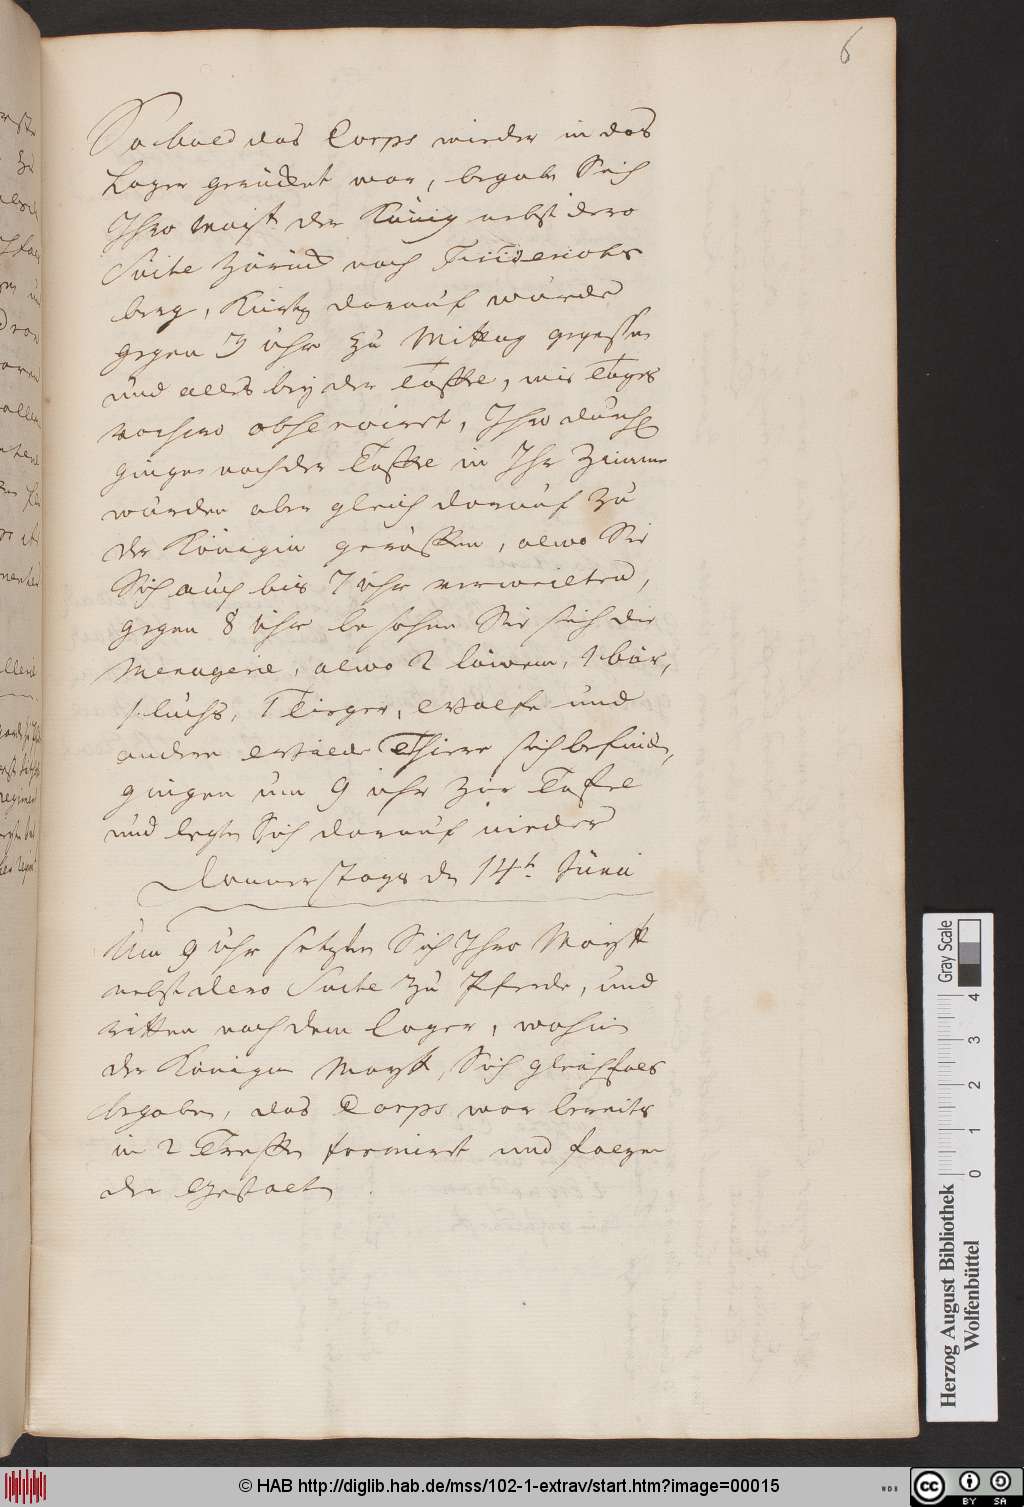 6
So bald das Corps wieder in das
Lager gerücket war, begab Sich
Ihro Mayst der König nebst dero
Suite zurück nach Friderichs
berg, Kurtz darauf wurde
gegen 3 Uhr zu Mittag gegessen
und alles bey der Taffel, wie Tages
vorhero observiret, Ihro durchl
gingen nach der Taffel in Ihr Zimmer
wurden aber gleich darauf zu
der Königin geruffen, alwo Sie
Sich auch bis 7 Uhr verweilten,
gegen 8 Uhr besahen Sie sich die
Menagerie, alwo 2 löwen, 1 bär,
1 luchs, 1 Tieger, Wölfe und
andere Wilde Thiere sich befinden,
gingen um 9 Uhr zur Tafel
und legten Sich darauf nieder
Donnerstags den 14t. Juni
Um 9 Uhr setzten Sich Ihro Mayst
nebst dero Suite zu Pferde, und
ritten nach dem Lager, wohin
der Königin Mayst, Sich gleichfals
begaben, das Corps war bereits
in 2 Treffen formiret und folgen
der Gestalt
Gray Scale
0 1 2 3 4
Herzog August Bibliothek
Wolfenbüttel
© HAB http://diglib.hab.de/mss/102-1-extrav/start.htm?image=00015
WDB
cc BY SA